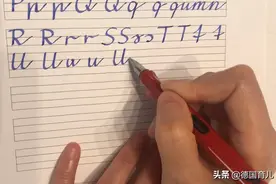 P p p Q Q q q qumn
R R r r S S s s T T t t
U U u u U
头条 @德国育儿